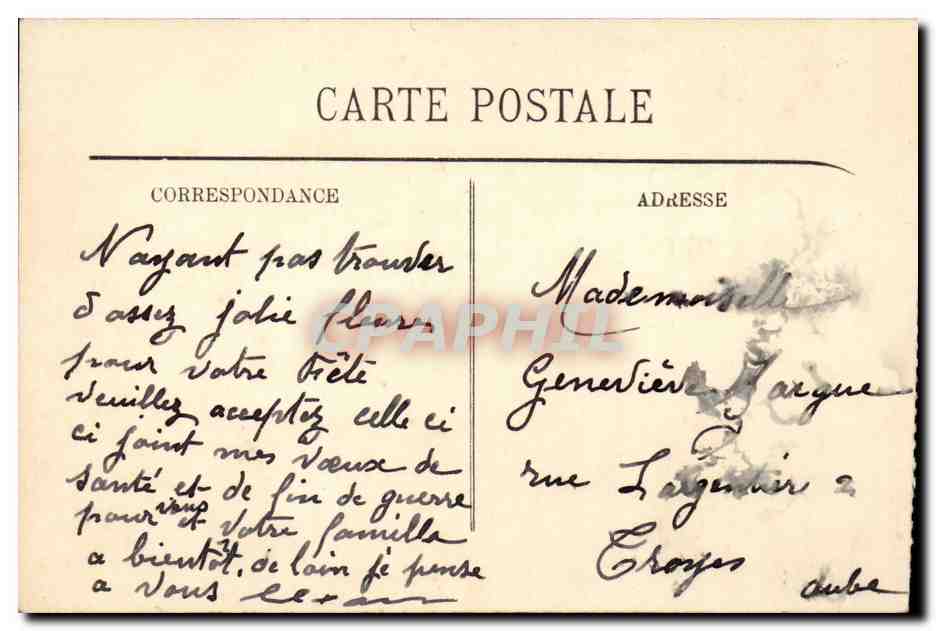 CARTE POSTALE
CORRESPONDANCE
ADRESSE
N'ayant pas trouver
d'assez jolie fleures
pour votre Fête
veuillez acceptez celle ci
ci joint mes vœux de
santé et de fin de guerre
pour vous et votre famille
a bientôt, de loin je pense
a vous
Mademoiselle
Geneviève Jargue
rue Largentier 2
Troyes
aube
CPAPHIL